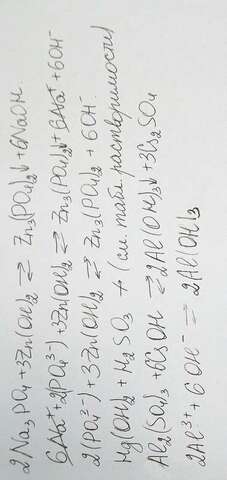 2Na₃PO₄ + 3Zn(OH)₂ ⇄ Zn₃(PO₄)₂↓ + 6NaOH.
6Na⁺ + 2(PO₄³⁻) + 3Zn(OH)₂ ⇄ Zn₃(PO₄)₂↓ + 6Na⁺ + 6OH⁻
2(PO₄³⁻) + 3Zn(OH)₂ ⇄ Zn₃(PO₄)₂ + 6OH⁻
Hg(OH)₂ + H₂SO₃ → (см табл. растворимости)
Al₂(SO₄)₃ + 6CsOH ⇄ 2Al(OH)₃↓ + 3Cs₂SO₄
2Al³⁺ + 6OH⁻ ⇄ 2Al(OH)₃